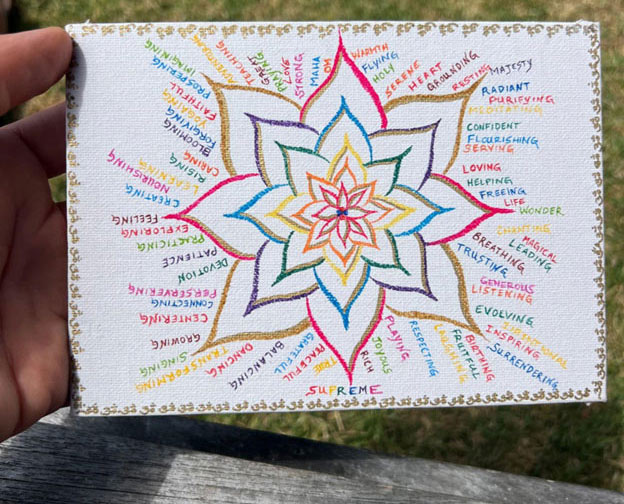 WARMTH
FLYING
HOLY
SERENE
HEART
GROUNDING
RESTING
MAJESTY
RADIANT
PURIFYING
MEDITATING
CONFIDENT
FLOURISHING
SERVING
LOVING
HELPING
FREEING
LIFE
WONDER
CHANTING
MAGICAL
LEADING
BREATHING
TRUSTING
GENEROUS
LISTENING
EVOLVING
INSPIRING
SURRENDERING
BIRTHING
FRUITFUL
LAUGHING
RESPECTING
PLAYING
JOYOUS
RICH
SUPREME
FREE
PEACEFUL
GRATEFUL
BALANCING
DANCING
TRANSFORMING
SINGING
GROWING
CENTERING
CONNECTING
PERSERVERING
DEVOTION
PATIENCE
PRACTICING
EXPLORING
FEELING
CREATING
NOURISHING
LEARNING
CARING
RISING
BLOOMING
FORGIVING
YOGAING
FAITHFUL
PROSPERING
IMAGINING
TEACHING
PRAYING
GREAT
LOVE
STRONG
MAHA
OM